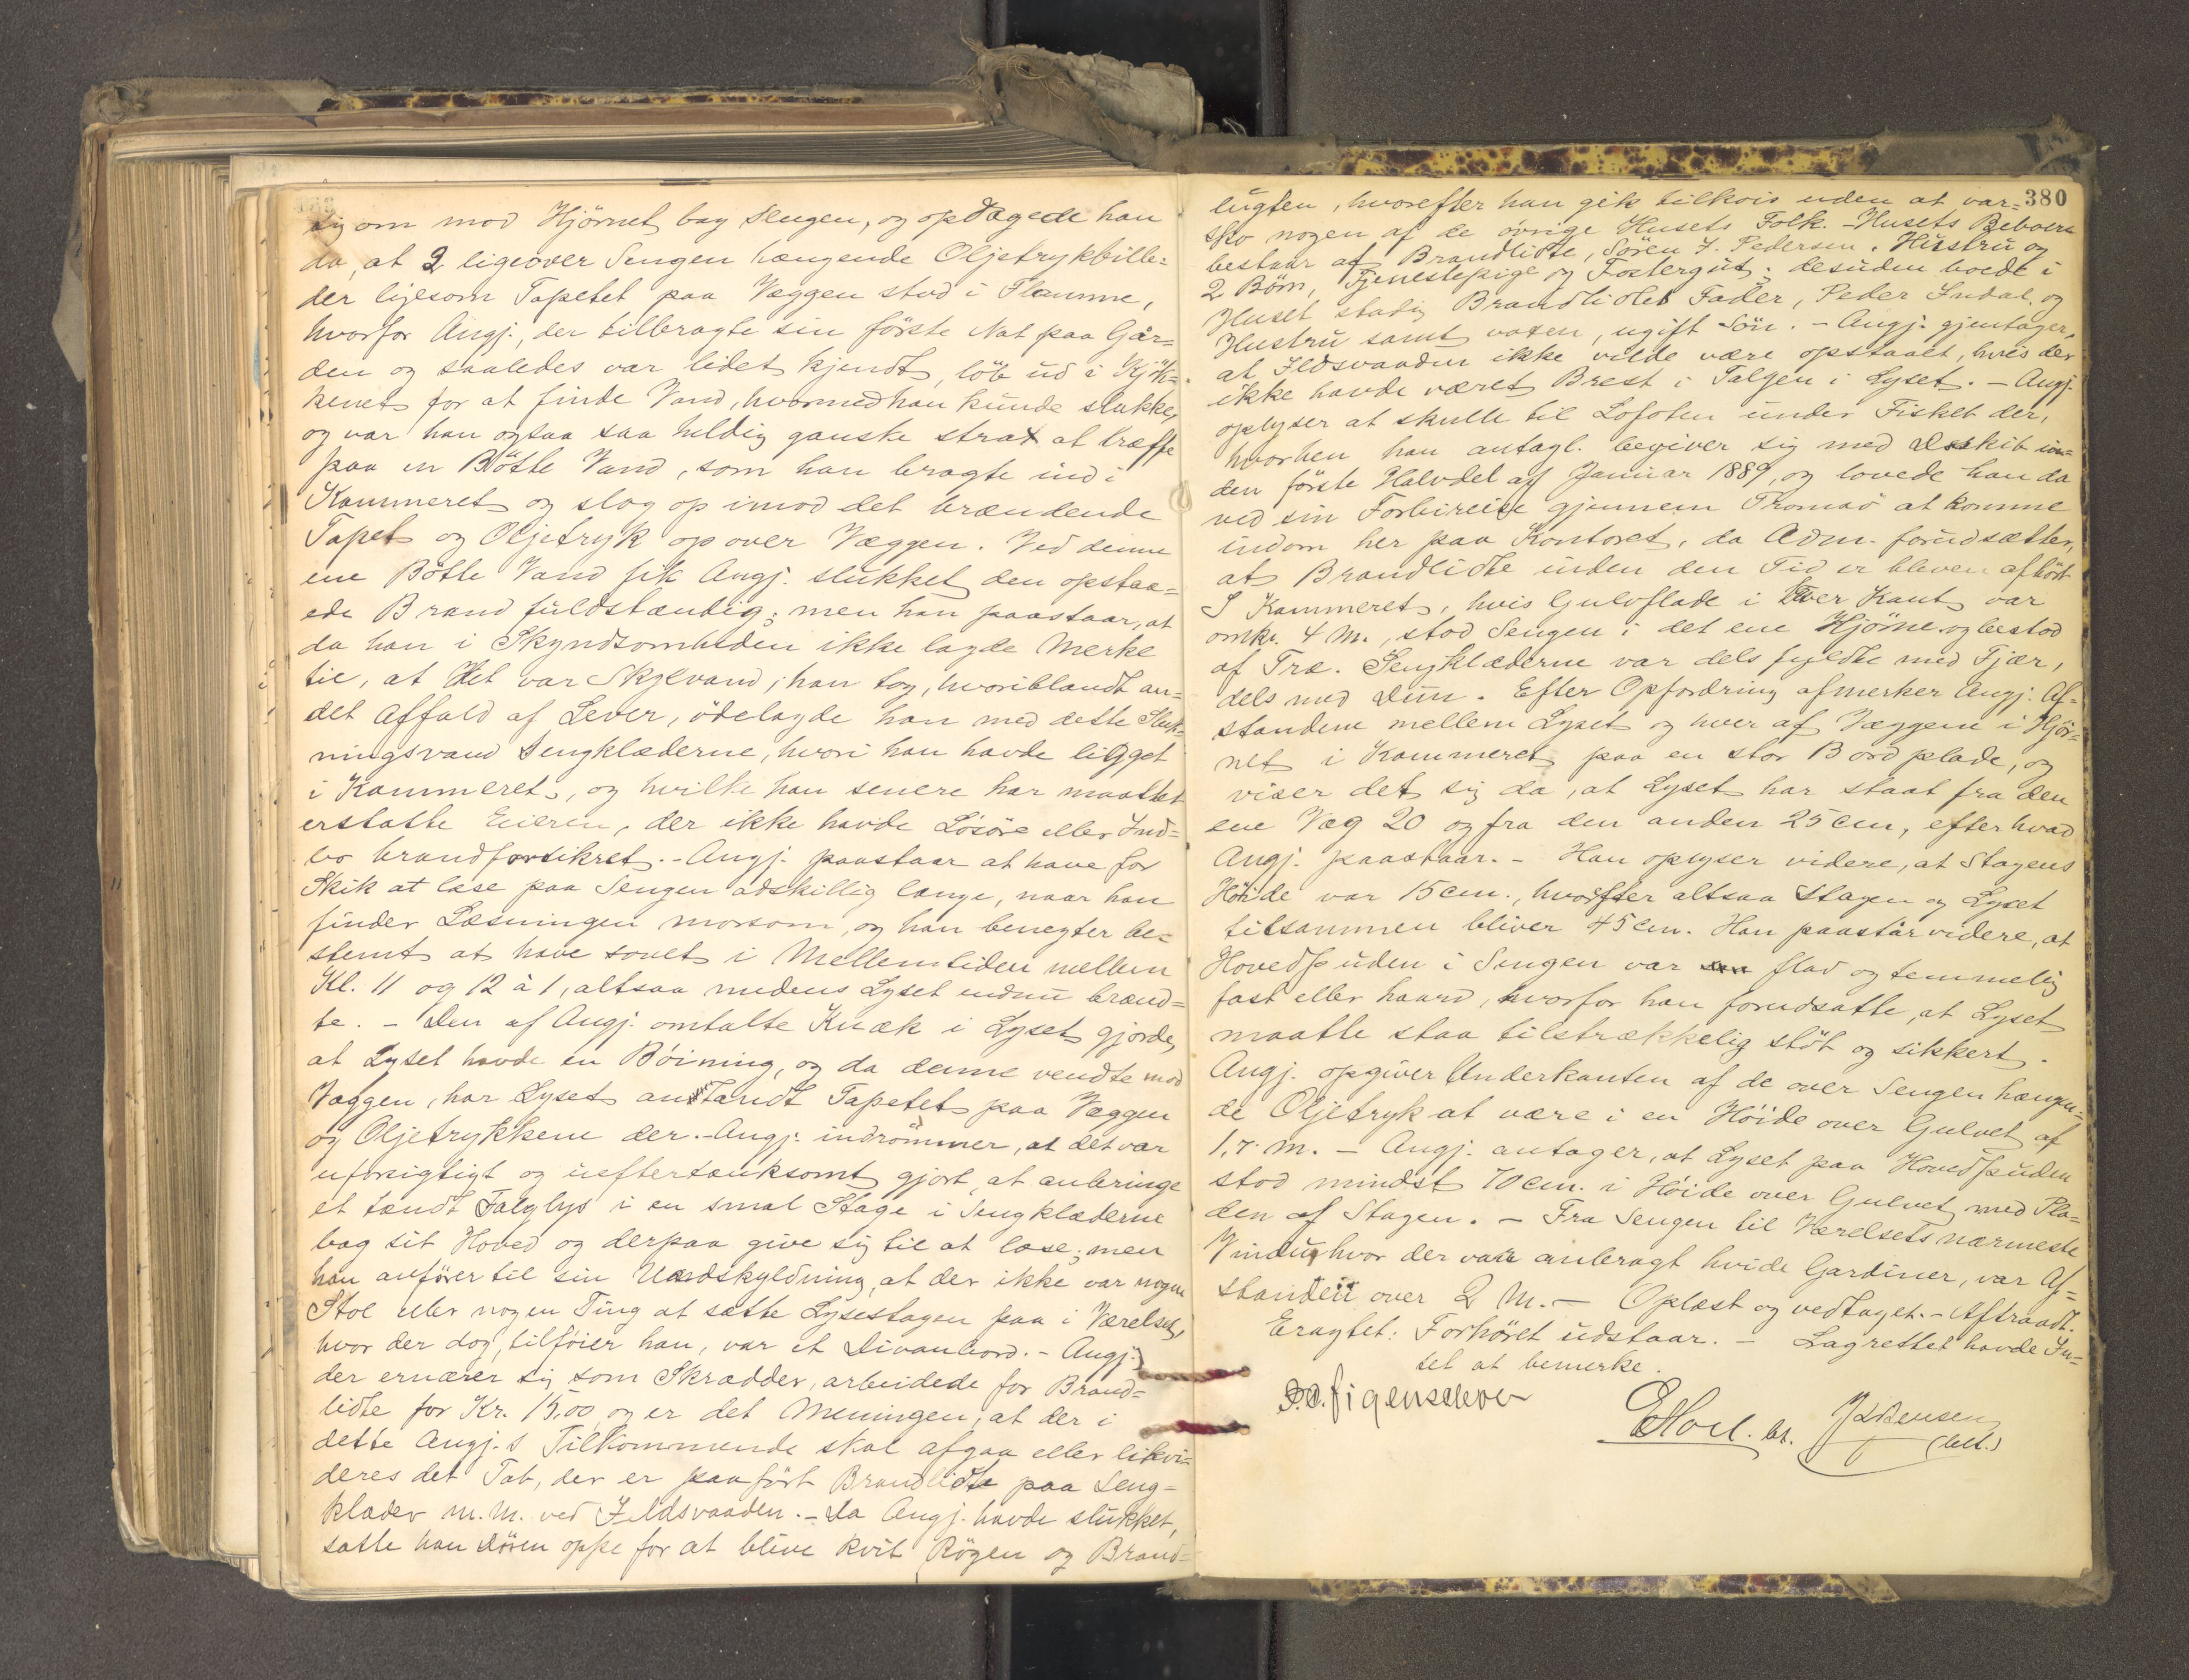 sig om mod Hjørnet bag Sengen, og opdagede han
da, at 2 ligeover Sengen hængende Oljetrykbille=
der ligesom Tapetet paa Væggen stod i Flamme,
hvorfor Angj., der tilbragte sin første Nat paa Går=
den og saaledes var lidet kjendt, løb ud i Kjøk=
kenet for at finde Vand, hvormed han kunde slukke,
og var han ogsaa saa heldig ganske strax at træffe
paa en Bøtte Vand, som han bragte ind i
Kammeret og slog op imod det brændende
Tapet og Oljetryk op over Væggen. Ved denne
ene Bøtte Vand fik Angj. slukket den opstaa=
ede Brand fuldstændig; men han paastaar, at
da han i Skyndsomheden ikke lagde Merke
til, at det var Skylvand, han tog, hvoriblandt an=
det Affald af Lever, ødelagde han med dette Sluk=
ningsvand Sengklæderne, hvori han havde ligget
i Kammeret, og hvilke han senere har maattet
erstatte Eieren, der ikke havde Løsøre eller Ind=
bo brandforsikret. - Angj. paastaar at have for
Skik at læse paa Sengen adskillig længe, naar han
finder Læsningen morsom, og han benegter be=
stemt at have sovet i Mellemtiden mellem
Kl. 11 og 12 à 1, altsaa medens Lyset endnu brænd=
te. - Den af Angj. omtalte Knæk i Lyset gjorde,
at Lyset havde en Bøining, og da denne vendte mod
Væggen, har Lyset antændt Tapetet paa Væggen
og Oljetrykkene der. - Angj. indrømmer, at det var
uforsigtigt og ueftertænksomt gjort, at anbringe
et tændt Talglys i en smal Stage i Sengklæderne
bag sit Hoved og derpaa give sig til at læse; men
han anfører til sin Undskyldning, at der ikke var nogen
Stol eller nogen Ting at sætte Lysestagen paa i Værelset,
hvor der dog, tilføier han, var et Divanbord. - Angj.
der ernærer sig som Skrædder, arbeidede for Brand=
lidte for Kr. 15,00, og er det Meningen, at der i
dette Angj.s Tilkommende skal afgaa eller likvi=
deres det Tab, der er paaført Brandlidte paa Seng=
klæder m.m. ved Ildsvaaden. - Da Angj. havde slukket,
satte han Døren oppe for at blive kvit Røgen og Brand=
380
lugten, hvorefter han gik tilkois uden at var=
sko nogen af de øvrige Husets Folk. - Husets Beboere
bestaar af Brandlidte, Søren J. Pedersen, Hustru og
2 Børn, Tjenestepige og Fostergut; desuden boede i
Huset stadig Brandlidtes Fader, Peder Indal, og
Hustru samt voxen, ugift Søn. - Angj. gjentager,
at Ildsvaaden ikke vilde være opstaaet, hvis der
ikke havde været Brest i Talgen i Lyset. - Angj.
oplyser at skulle til Lofoten under Fisket der,
hvorhen han antagl. begiver sig med Dskib in=
den første Halvdel af Januar 1889, og lovede han da
ved sin Forbireise gjennem Tromsø at komme
indom her paa Kontoret, da Adm. forudsætter,
at Brandlidte inden den Tid er bleven afhørt
I Kammeret, hvis Gulvflade i hver Kant var
omkr. 4 M., stod Sengen i det ene Hjørne og bestod
af Træ. Sengklæderne var dels fyldte med Fjær,
dels med Dun. Efter Opfordring afmerker Angj. Af=
standene mellem Lyset og hver af Væggene i Hjør=
net i Kammeret paa en stor Bordplade, og
viser det sig da, at Lyset har staat fra den
ene Væg 20 og fra den anden 25 cm, efter hvad
Angj. paastaar. - Han oplyser videre, at Stagens
Høide var 15 cm., hvorefter altsaa Stagen og Lyset
tilsammen bliver 45 cm. Han paastår videre, at
Hovedpuden i Sengen var flad og temmelig
fast eller haard, hvorfor han forudsatte, at Lyset
maatte staa tilstrækkelig støt og sikkert.
Angj. opgiver Underkanten af de over Sengen hængen=
de Oljetryk at være i en Høide over Gulvet af
1,7 m. - Angj. antager, at Lyset paa Hovedpuden
stod mindst 70 cm. i Høide over Gulvet med Pla=
den af Stagen. - Fra Sengen til Værelsets nærmeste
Vindu, hvor der var anbragt hvide Gardiner, var Af=
standen over 2 M. - Oplæst og vedtaget. - Aftraadt.
Eragtet: Forhøret udstaar. - Lagrettet havde In=
tet at bemerke.
EHoel. bs.
(bell.)